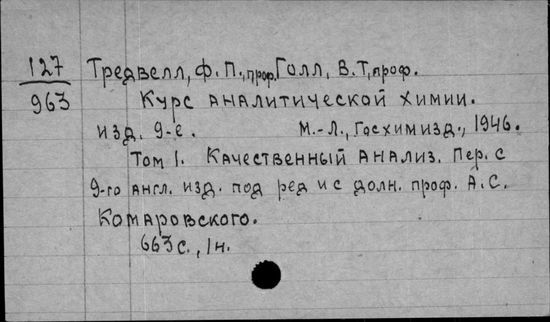 127 Тредвелл, Ф. П., проф. Голл, В. Т., проф.
963 Курс аналитической химии.
изд. 9-е. М.-Л., Госхимизд., 1946.
Том 1. Качественный анализ. Пер. с
9-го англ. изд. под ред и с долн. проф. А. С.
Комаровского.
663 с., 1 н.